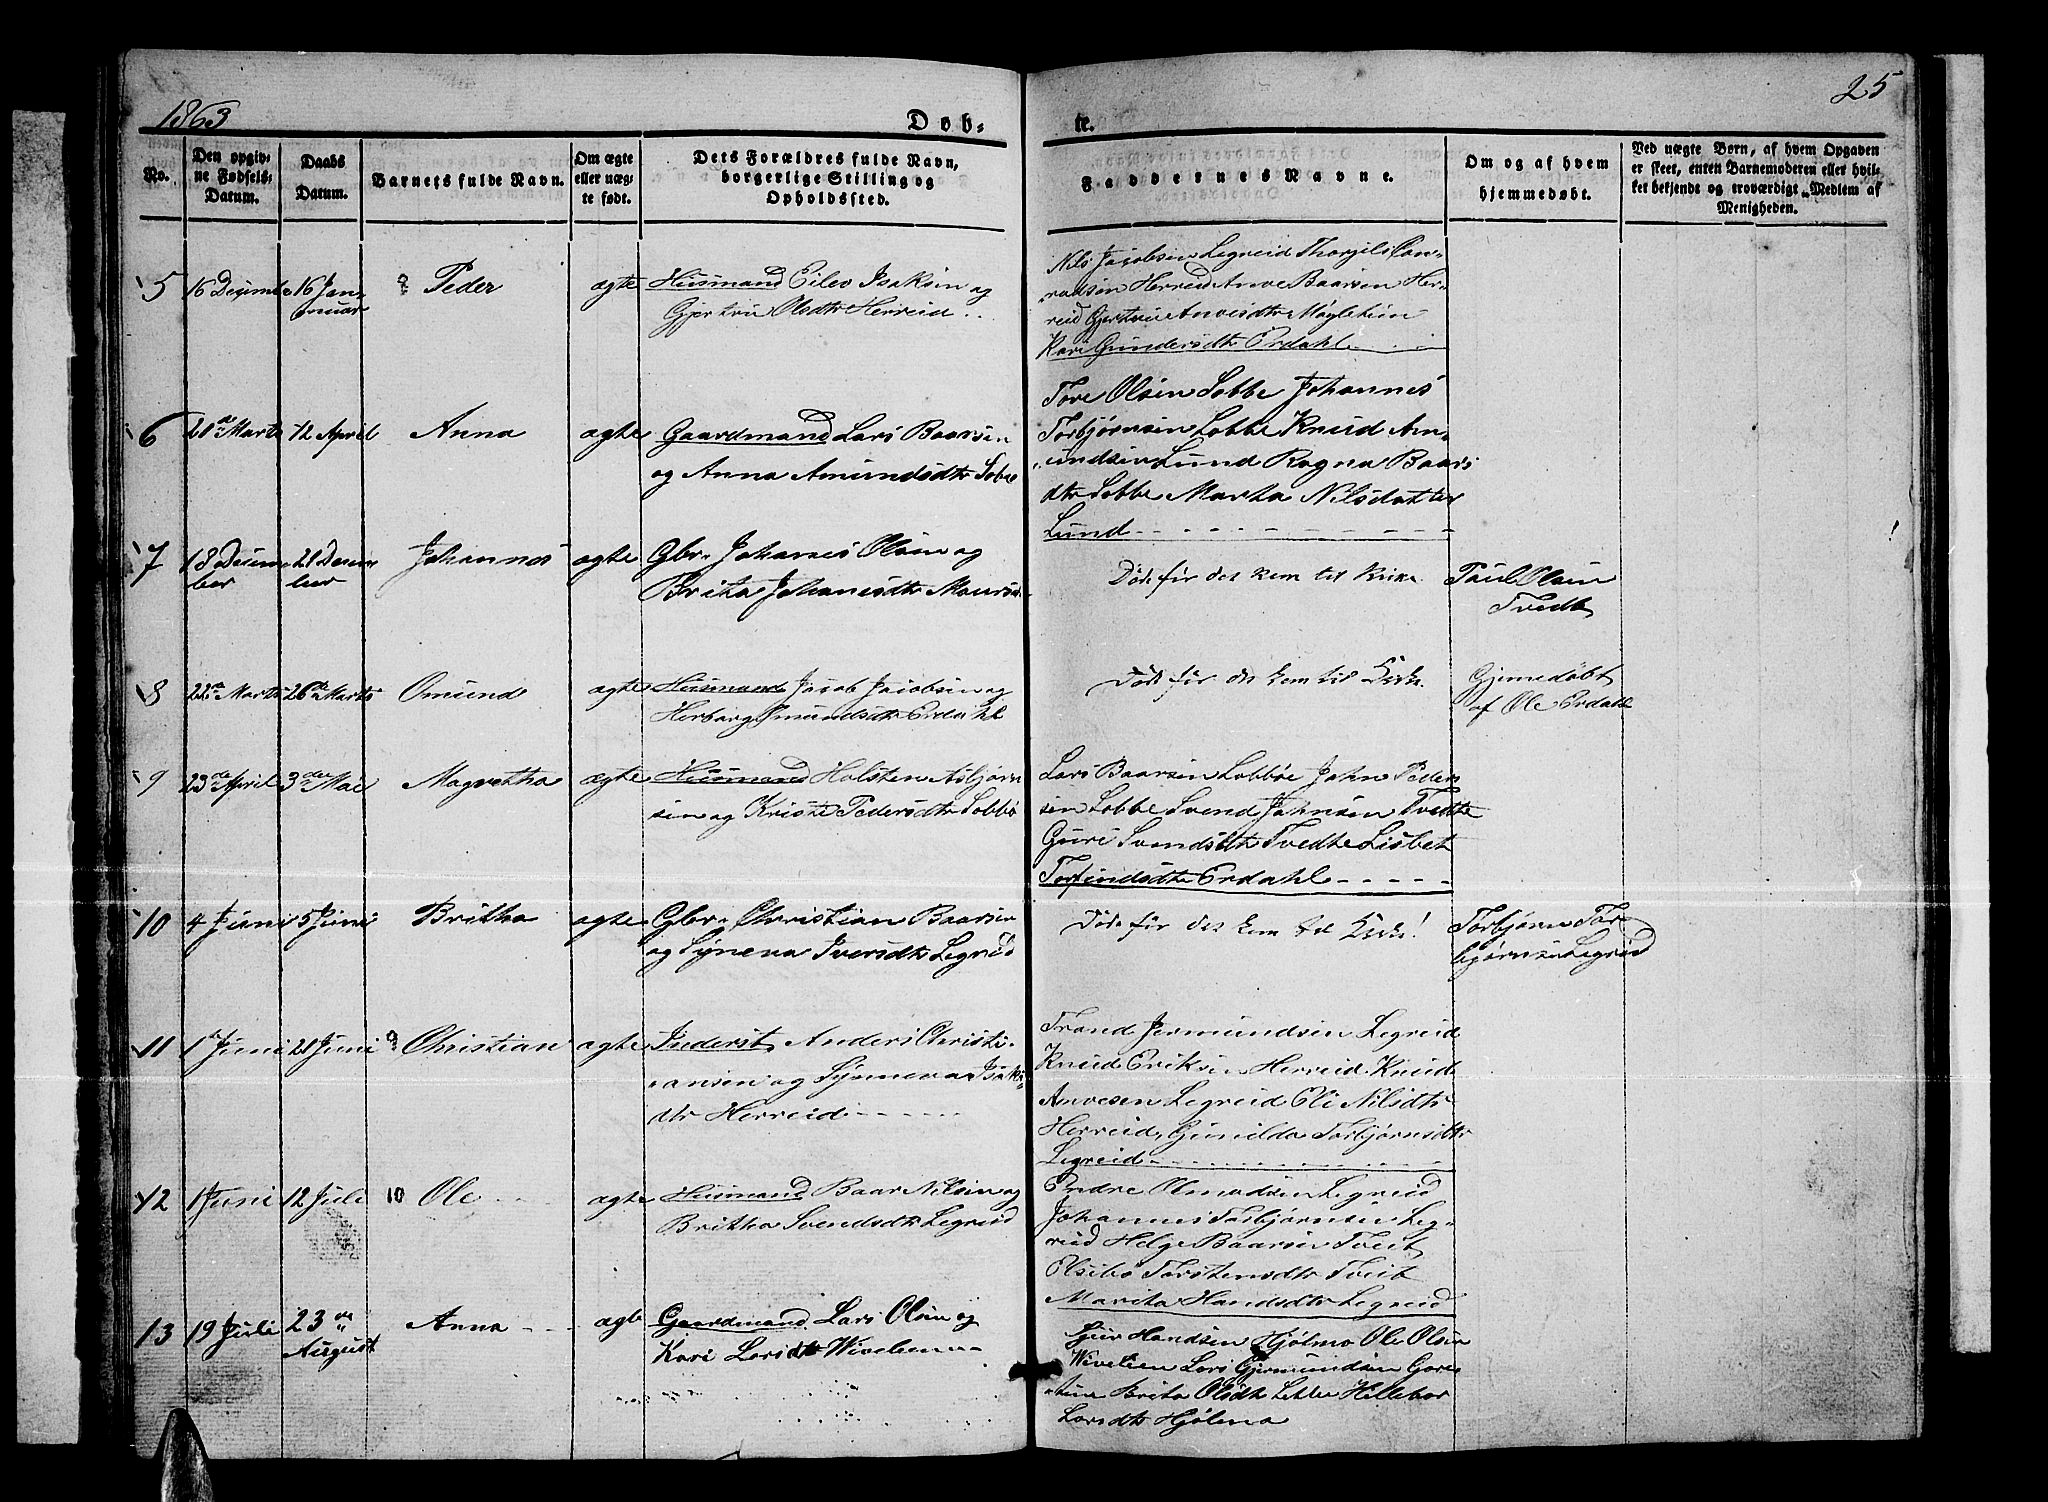 1863
25
Døb-
te.
No.
Den opgiv-
ne Fødsels-
Datum.
Daabs
Datum.
Barnets fulde Navn.
Om ægte
eller uæg-
te født.
Dets Forældres fulde Navn,
borgerlige Stilling og
Opholdssted.
Faddernes Navne.
Om og af hvem
hjemmedøbt.
Ved uægte Børn, af hvem Opgaven
er skeet, enten Barnemoderen eller hvil-
ket bekjendt og troværdigt Medlem af
Menigheden.
5
16 Decemb
16 Jan-
nuar
Peder
ægte
Huusmand Eilev Isaksen og
Gjertru Olsdtr Herreid
Nils Jacobsen Legreid Thorgils Con-
radsen Herreid Anve Baarsen Her-
reid Gjertru Anvesdtr Mögletün
Kari Gundersdtr Erdahl
6
21de Marts
12 April
Anna
ægte
Gaardmand Lars Baarsen
og Anna Amundsdtr Lobe
Tore Olsen Lobbe Johannes
Torbjørnsen Lobbe Knud Am-
undsen Lund Ragna Baars
dtr Lobbe Marta Nilsdatter
Lund
7
18 Decem
ber
21 Decem
ber
Johannes
ægte
Gbr. Johanes Olsen og
Brita Johanesdtr
Døde før det kom til Kirke
Paul Olsen
Tvedt
8
22de Marts
26de Marts
Omund
ægte
Huusmand Jacob Jacobsen og
Herborg Omundsdtr Erdahl
Døde før det kom til Kirke.
Gjemedøbt
af Ole Erdahl
9
23de April
3die Mai
Magretha
ægte
Huusmand Holsten Asbjørn
sen og Kriste Pedersdtr Lobbe
Lars Baarsen Lobbøe John Peder
sen Lobbe Svend Johnsen Tvedte
Guri Svendsdtr Tvedte Lisbet
Torfindsdtr Erdahl
10
4 Juni
5 Juni
Britha
ægte
Gbr. Christian Baarsen
og Syneva Iversdtr Legreid
Døde før det kom til Kirke!
Torbjørn Tor
bjørnsen Legreid
11
1ste Juni
21 Juni
9
Christian
ægte
Inderst Anders Christi-
ansen og Synneva Isaks
dtr Herreid
Trond Jermundsen Legreid
Knud Eriksen Herreid Knud
Anvesen Legreid Eli Nilsdtr
Herreid, Gunilda Torbjørnsdtr
Legreid
12
1 Juni
12 Juli
10
Ole
ægte
Huusmand Baar Nilsen og
Britha Svendsdtr Legreid
Endre Olmodsen Legreid
Johannes Torbjørnsen Leg-
reid Helge Baarsen Tveit
Elsibe Torstensdtr Tveit
Marita Handsdtr Legreid
13
19 Juli
23de
August
Anna
ægte
Gaardmand Lars Olsen og
Kari Larsdtr Wivelien
Sjur Handsen Hjølmo Ole Olsen
Wivelien Lars Gjermundsen Gare-
tün Brita Olsdtr Lekve Hillebor
Larsdtr Hjølmo